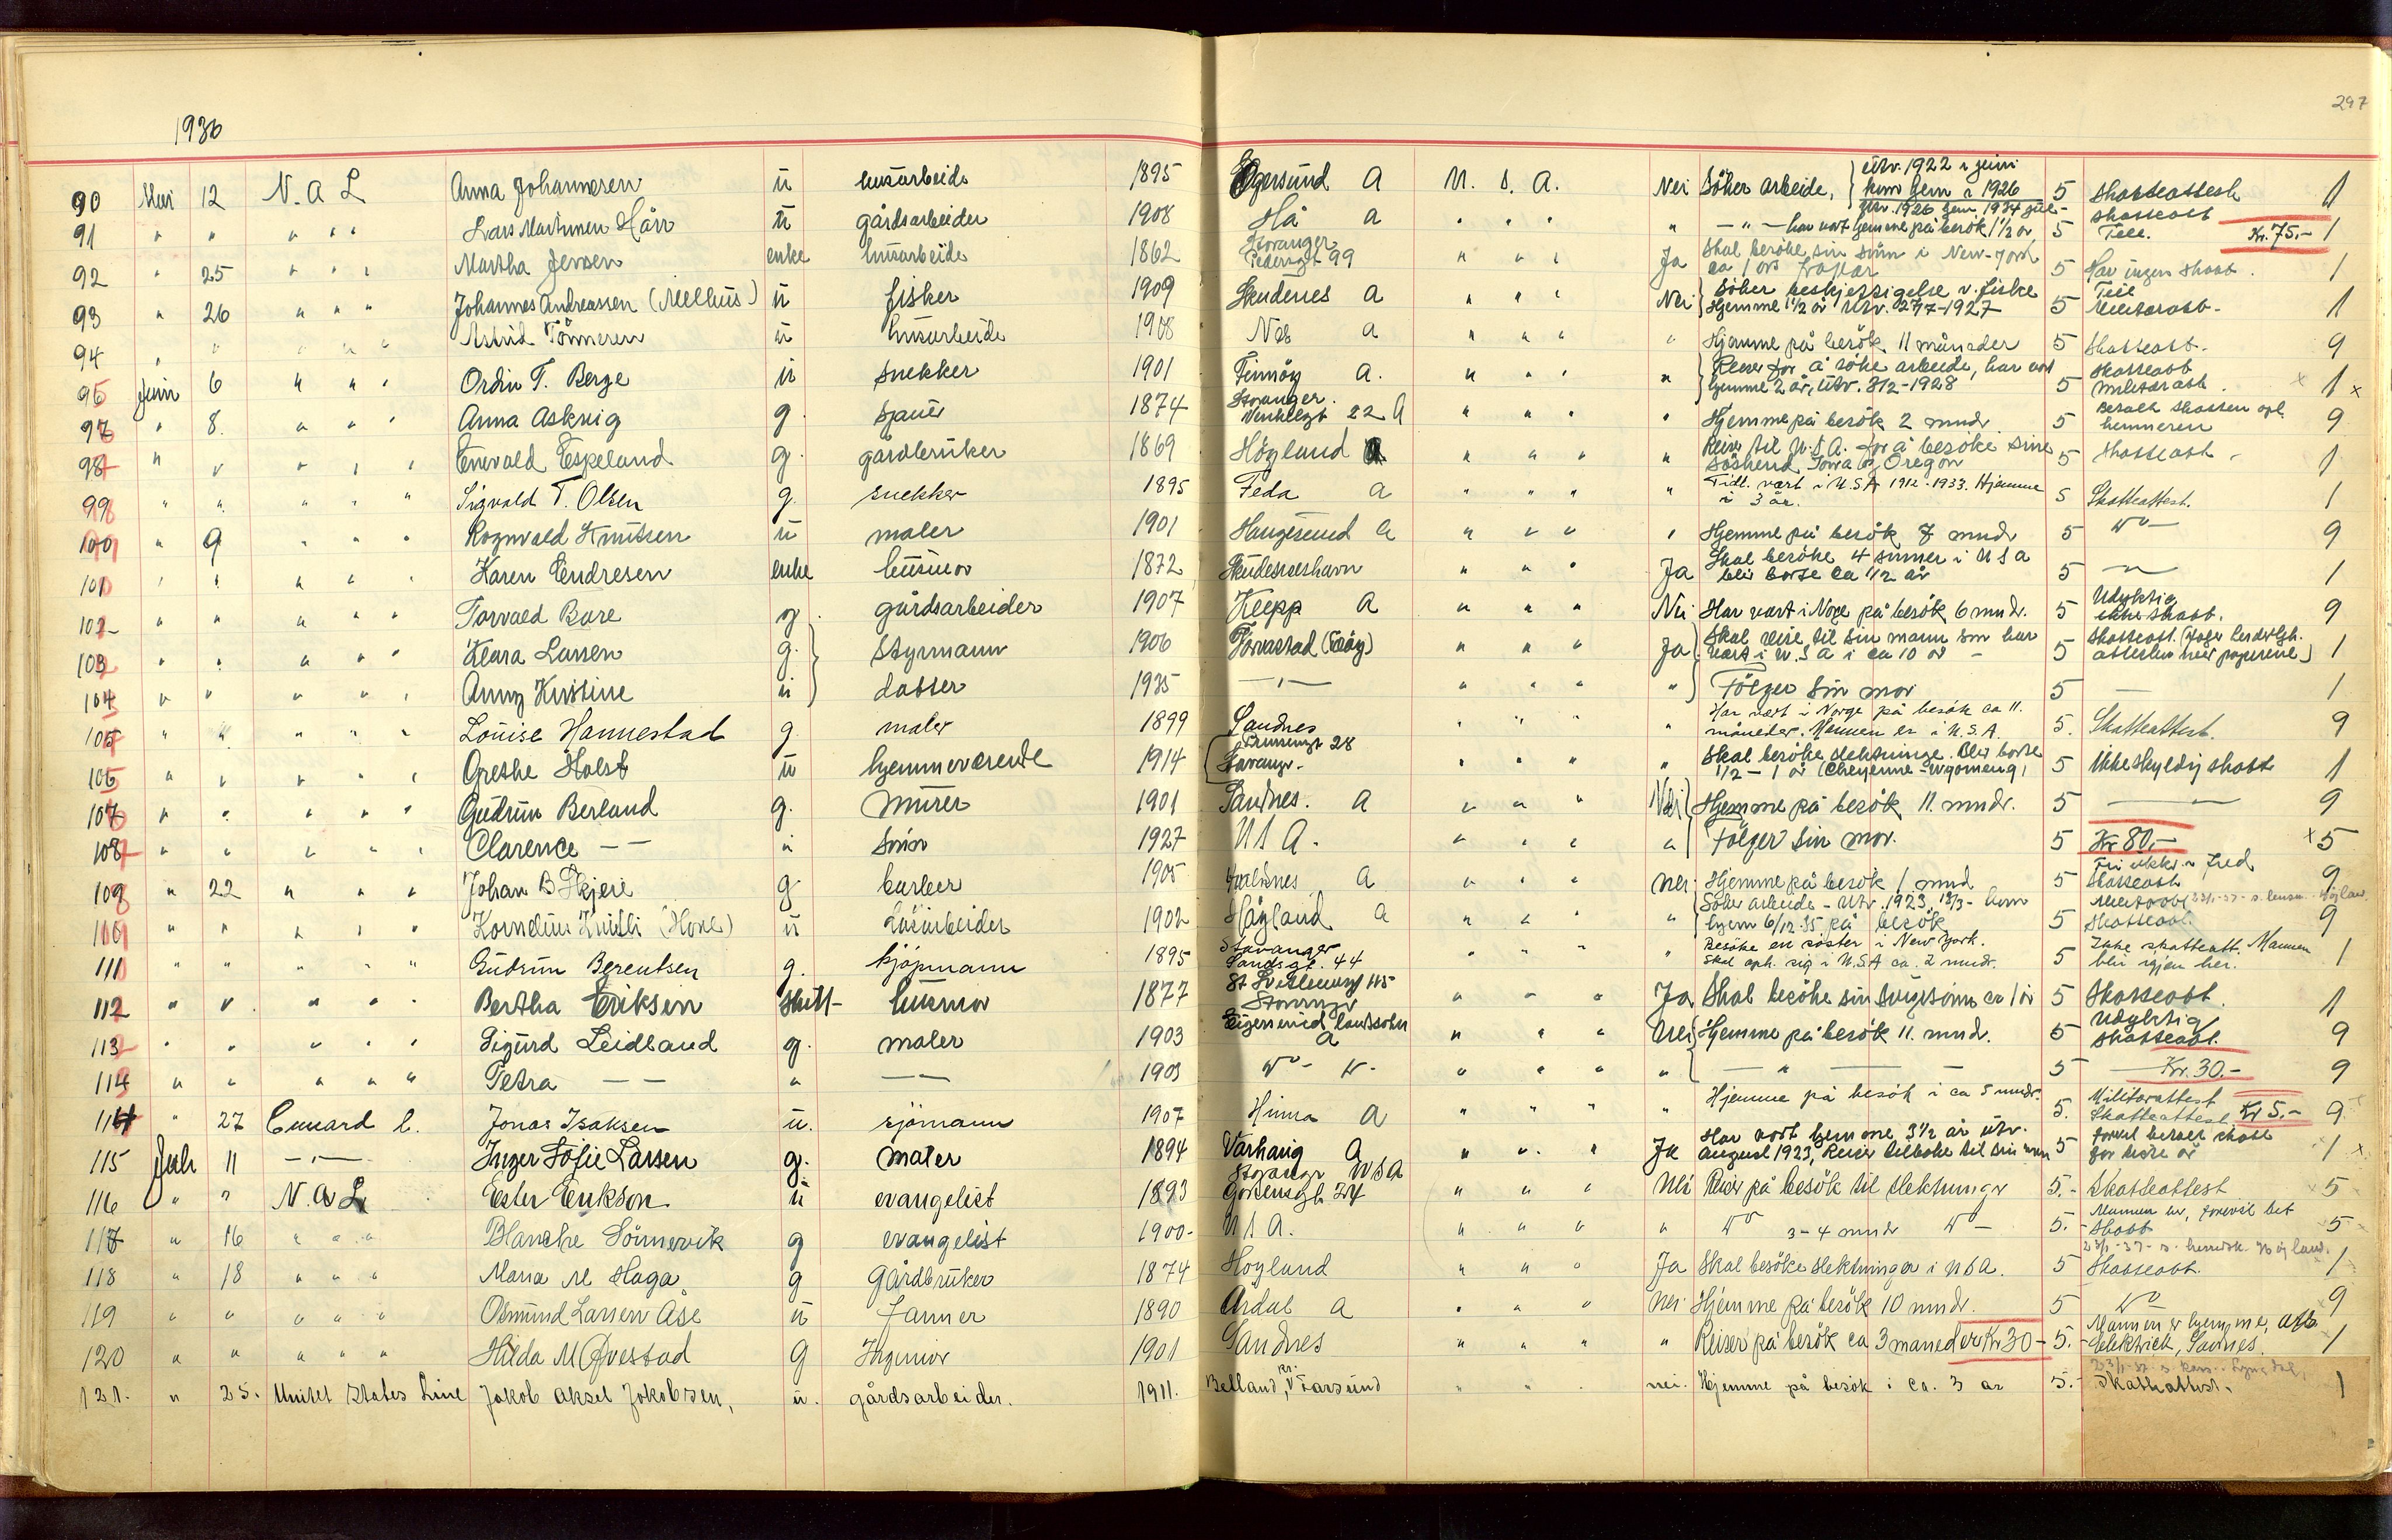 297
1936
90 Mai 12 N. A L Anna Johannesen u husarbeide 1895 Egersund A U. S. A. Nei Söker arbeide, utv. 1922 i juni kom hjem i 1926 utv. 1926 hjem 1934 5 skatteattest 1
91 " " " " " Lars Martinsen Hårr u gårdsarbeider 1908 Hå a " " " " — " — har vært hjemme på besök 1½ år 5 skatteatt Kr. 75.- 1
92 " 25 " " " Martha Jensen enke husarbeide 1862 Stavanger Pedersgt 99 " " " Ja Skal besöke sin sönn i New-York ca 1 års 5 Har ingen skatt. 1
93 " 26 " " " Johannes Andreassen (Melhus) u fisker 1909 Skudenes a " " " Nei Söker beskjeftigelse v. fiske Hjemme 1½ år Utv. 1927 5 Militæratt. 1
94 " " " " " Astrid Tönnesen u husarbeide 1908 Nes a " " " " Hjemme på besök 11 måneder 5 Skatteatt. 9
96 Juni 6 " " " Ordin T. Berge u snekker 1901 Finnöy a. " " " " Reiser for å söke arbeide, har vært hjemme 2 år, utv. 8/2-1928 5 Skatteatt militæratt. x 1 x
97 " 8. " " " Anna Askvig g. 1874 Stavanger. 22 A " " " " Hjemme på besök 2 mndr. 5 Betalt skatten opl. 9
98 " " " " " Enevald Espeland g. gårdbruker 1869 Högland " " " " Reiser til U.S.A. for å besöke sine söskend Iowa og Oregon 5 Skatteatt. 1
99 " " " " " Sigvald T. Olsen g. snekker 1895 Feda a " " " " Tidl. vært i U.S.A 1912-1933. Hjemme i 3 år. 5 Skatteattest. 1
100 " 9 " " " Rognvald Knutsen u maler 1901 Haugesund a " " " " Hjemme på besök 7 mndr 5 Do — 9
101 " " " " " Karen Endresen enke husmor 1872 Skudeneshavn " " " Ja Skal besöke 4 sönner i U S A blir borte ca 1/2 år 5 — " — 1
102 " " " " " Torvald Bore g. gårdsarbeider 1907 Klepp a " " " Nei Har vært i Norge på besök 6 mndr. 5 Udyktig ikke skatt. 9
103 " " " " " Klara Larsen g. Styrmann 1906 Torvastad " " " Ja Skal reise til sin mann som har vært i U.S A i ca 10 år — 5 Skatteatt. 1
104 " " " " " Anny Kristine u datter 1935 — " — " " " " Fölger sin mor 5 — 1
105 " " " " " Louise Hannestad g. maler 1899 Sandnes " " " " Har vært i Norge på besök ca 11. måneder. Mannen er i U.S.A. 5. Skatteattest. 9
106 " " " " " Grethe Holst u hjemmeværende 1914 28 Stavanger " " " " Skal besöke slektninge. Blir borte 1/2 - 1 år (Cheyenne - 5 Ikke skyldig skatt 1
107 " " " " " Gudrun Berland g. murer 1901 Sandnes. a " " " Nei Hjemme på besök 11. mndr. 5 — 9
108 " " " " " Clarence — — u sönn 1927 U S A. " " " " Fölger sin mor. 5 Kr 80.- x 5
109 " 22 " " " Johan B Skjeie g barber 1905 a " " " Nei Hjemme på besök 1 mnd 5 Skatteatt 9
110 " " " " " Kornelius u 1902 Högland a " " " " Söker arbeide - utv. 1923, kom hjem 6/12-35 på besök 5 skatteatt. 9
111 " " " " " Gudrun Berentsen g. kjöpmann 1895 Stavanger 44 " " " " Besöke en söster i New York. Skal oph. sig i U.S.A ca. 2 mndr. 5 Ikke skatteatt. Mannen blir igjen her. 1
112 " " " " " Bertha Eriksen skilt- husmor 1877 Stavanger " " " Ja Skal besöke sin svigersönn ca 1 år 5 Skatteatt. 1
113 " " " " " Sigurd Leidland g. maler 1903 Eigersund landsokn a " " " Nei Hjemme på besök 11. mnd. 5 Udyktig skatteatt. 9
114 " " " " " Petra — — " — 1903 Do - Do - " " " " — " — 5 — Kr. 30.- 9
114 " 27 Cunard L. Jonas Isaksen u. sjömann 1907 Hinna a " " " " Hjemme på besök i ca 5 mndr. 5. Militærattest Skatteattest Kr 5.- 9
115 Juli 11 — " — Inger Sofie Larsen g. maler 1894 Varhaug a " " " Ja Har vært hjemme 3½ år utv. august 1923, Reiser tilbake til sin mann 5 betalt skatt for siste år 1
116 " " N. A L Ester Erikson u evangelist 1893 Stavanger U S A " " " Nei Reiser på besök til slektninger 5.- Skatteattest 5
117 " 16 " " " Blanche Sönnervik g evangelist 1900- U S A. " " " " Do 3-4 mndr Do — 5.- Skatt 5
118 " 18 " " " Maria M Haga g gårdbruker 1874 Hogland " " " Ja Skal besöke slektninger i U S A. 5 Skatteatt. 1
119 " " " " " Osmund Larsen Åse u farmer 1890 Årdal a " " " Nei Hjemme på besök 10 mndr. 5 Do 9
120 " " " " " Hilda M Qvestad g Ingeniör 1901 Sandnes " " " " Reiser på besök ca 3 måneder Kr 30- 5.- Mannen er hjemme, Elektrisk, Sandnes. 1
121. " 25. Unitet States Line Jakob Aksel Jakobsen, u. gårdsarbeider. 1911. Farsund " " nei. Hjemme på besök i ca. 3 år 5.- Skatteattest. 1